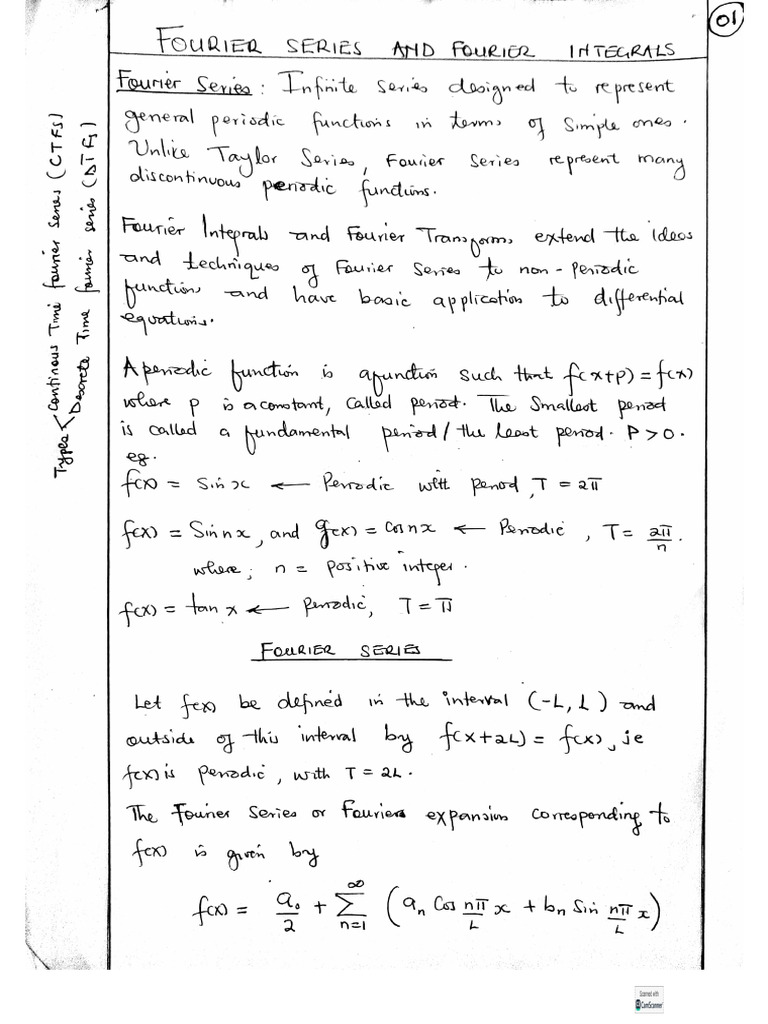 01
FOURIER SERIES AND FOURIER INTEGRALS
Fourier Series : Infinite series designed to represent
general periodic functions in terms of simple ones.
Unlike Taylor Series, Fourier Series represent many
discontinuous periodic functions.
Fourier Integrals and Fourier Transforms extend the ideas
and techniques of Fourier Series to non-periodic
functions and have basic application to differential
equations.
A periodic function is a function such that f(x+p) = f(x)
where p is a constant, called period. The smallest period
is called a fundamental period / the least period. P > 0.
eg.
f(x) = Sin x ← Periodic with period, T = 2π
f(x) = Sin nx, and g(x) = cos nx ← Periodic, T = 2π/n.
where; n = positive integer.
f(x) = tan x ← Periodic, T = π
FOURIER SERIES
Let f(x) be defined in the interval (-L, L) and
outside of this interval by f(x+2L) = f(x), ie
f(x) is periodic, with T = 2L.
The Fourier Series or Fouriers expansion corresponding to
f(x) is given by
f(x) = a₀/2 + ∑ n=1 ∞ (aₙ Cos nπ/L x + bₙ Sin nπ/L x)
Types < Continous Time fourier series (CTFS)
Descrete Time fourier series (DTFS)
Scanned with
CS CamScanner